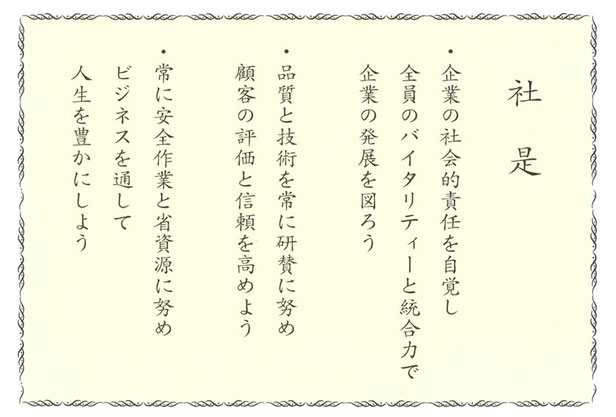 社是
・企業の社会的責任を自覚し
全員のバイタリティーと統合力で
企業の発展を図ろう
・品質と技術を常に研賛に努め
顧客の評価と信頼を高めよう
・常に安全作業と省資源に努め
ビジネスを通して
人生を豊かにしよう